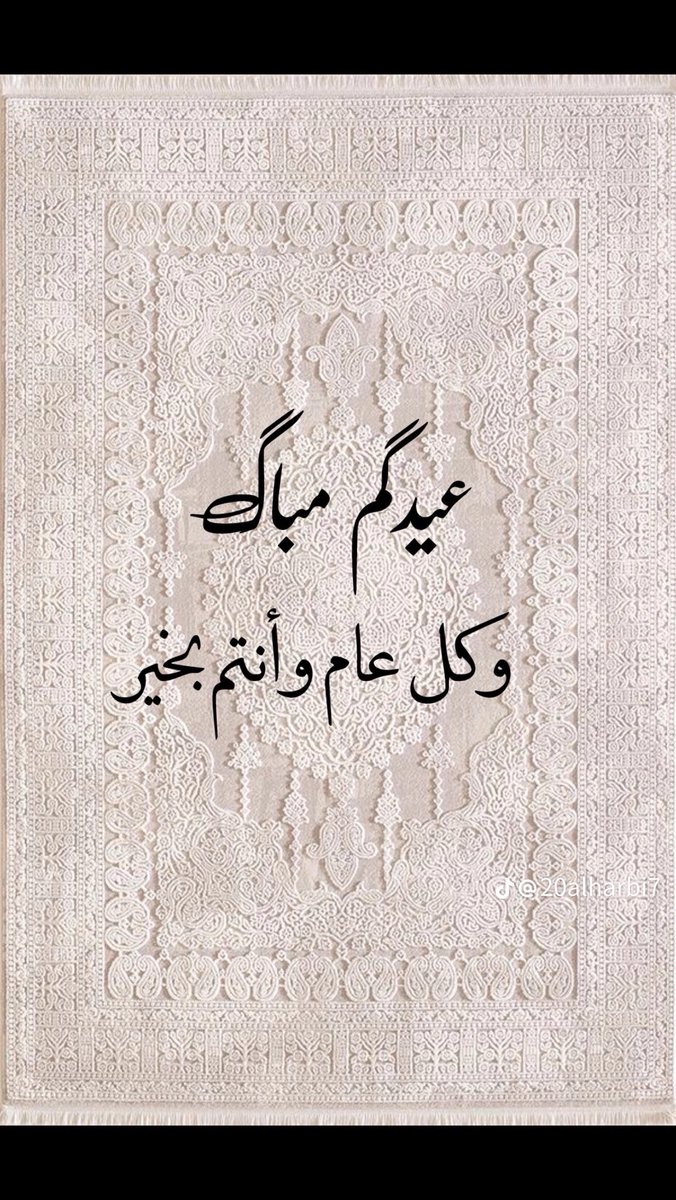 عيدگم مباگ
وكل عام وأنتم بخير
@20alharbi7